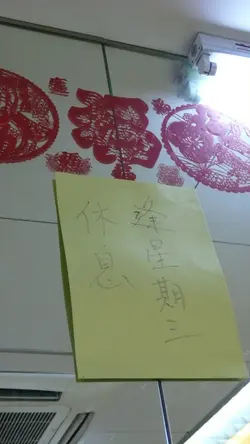 逢星期三
休息